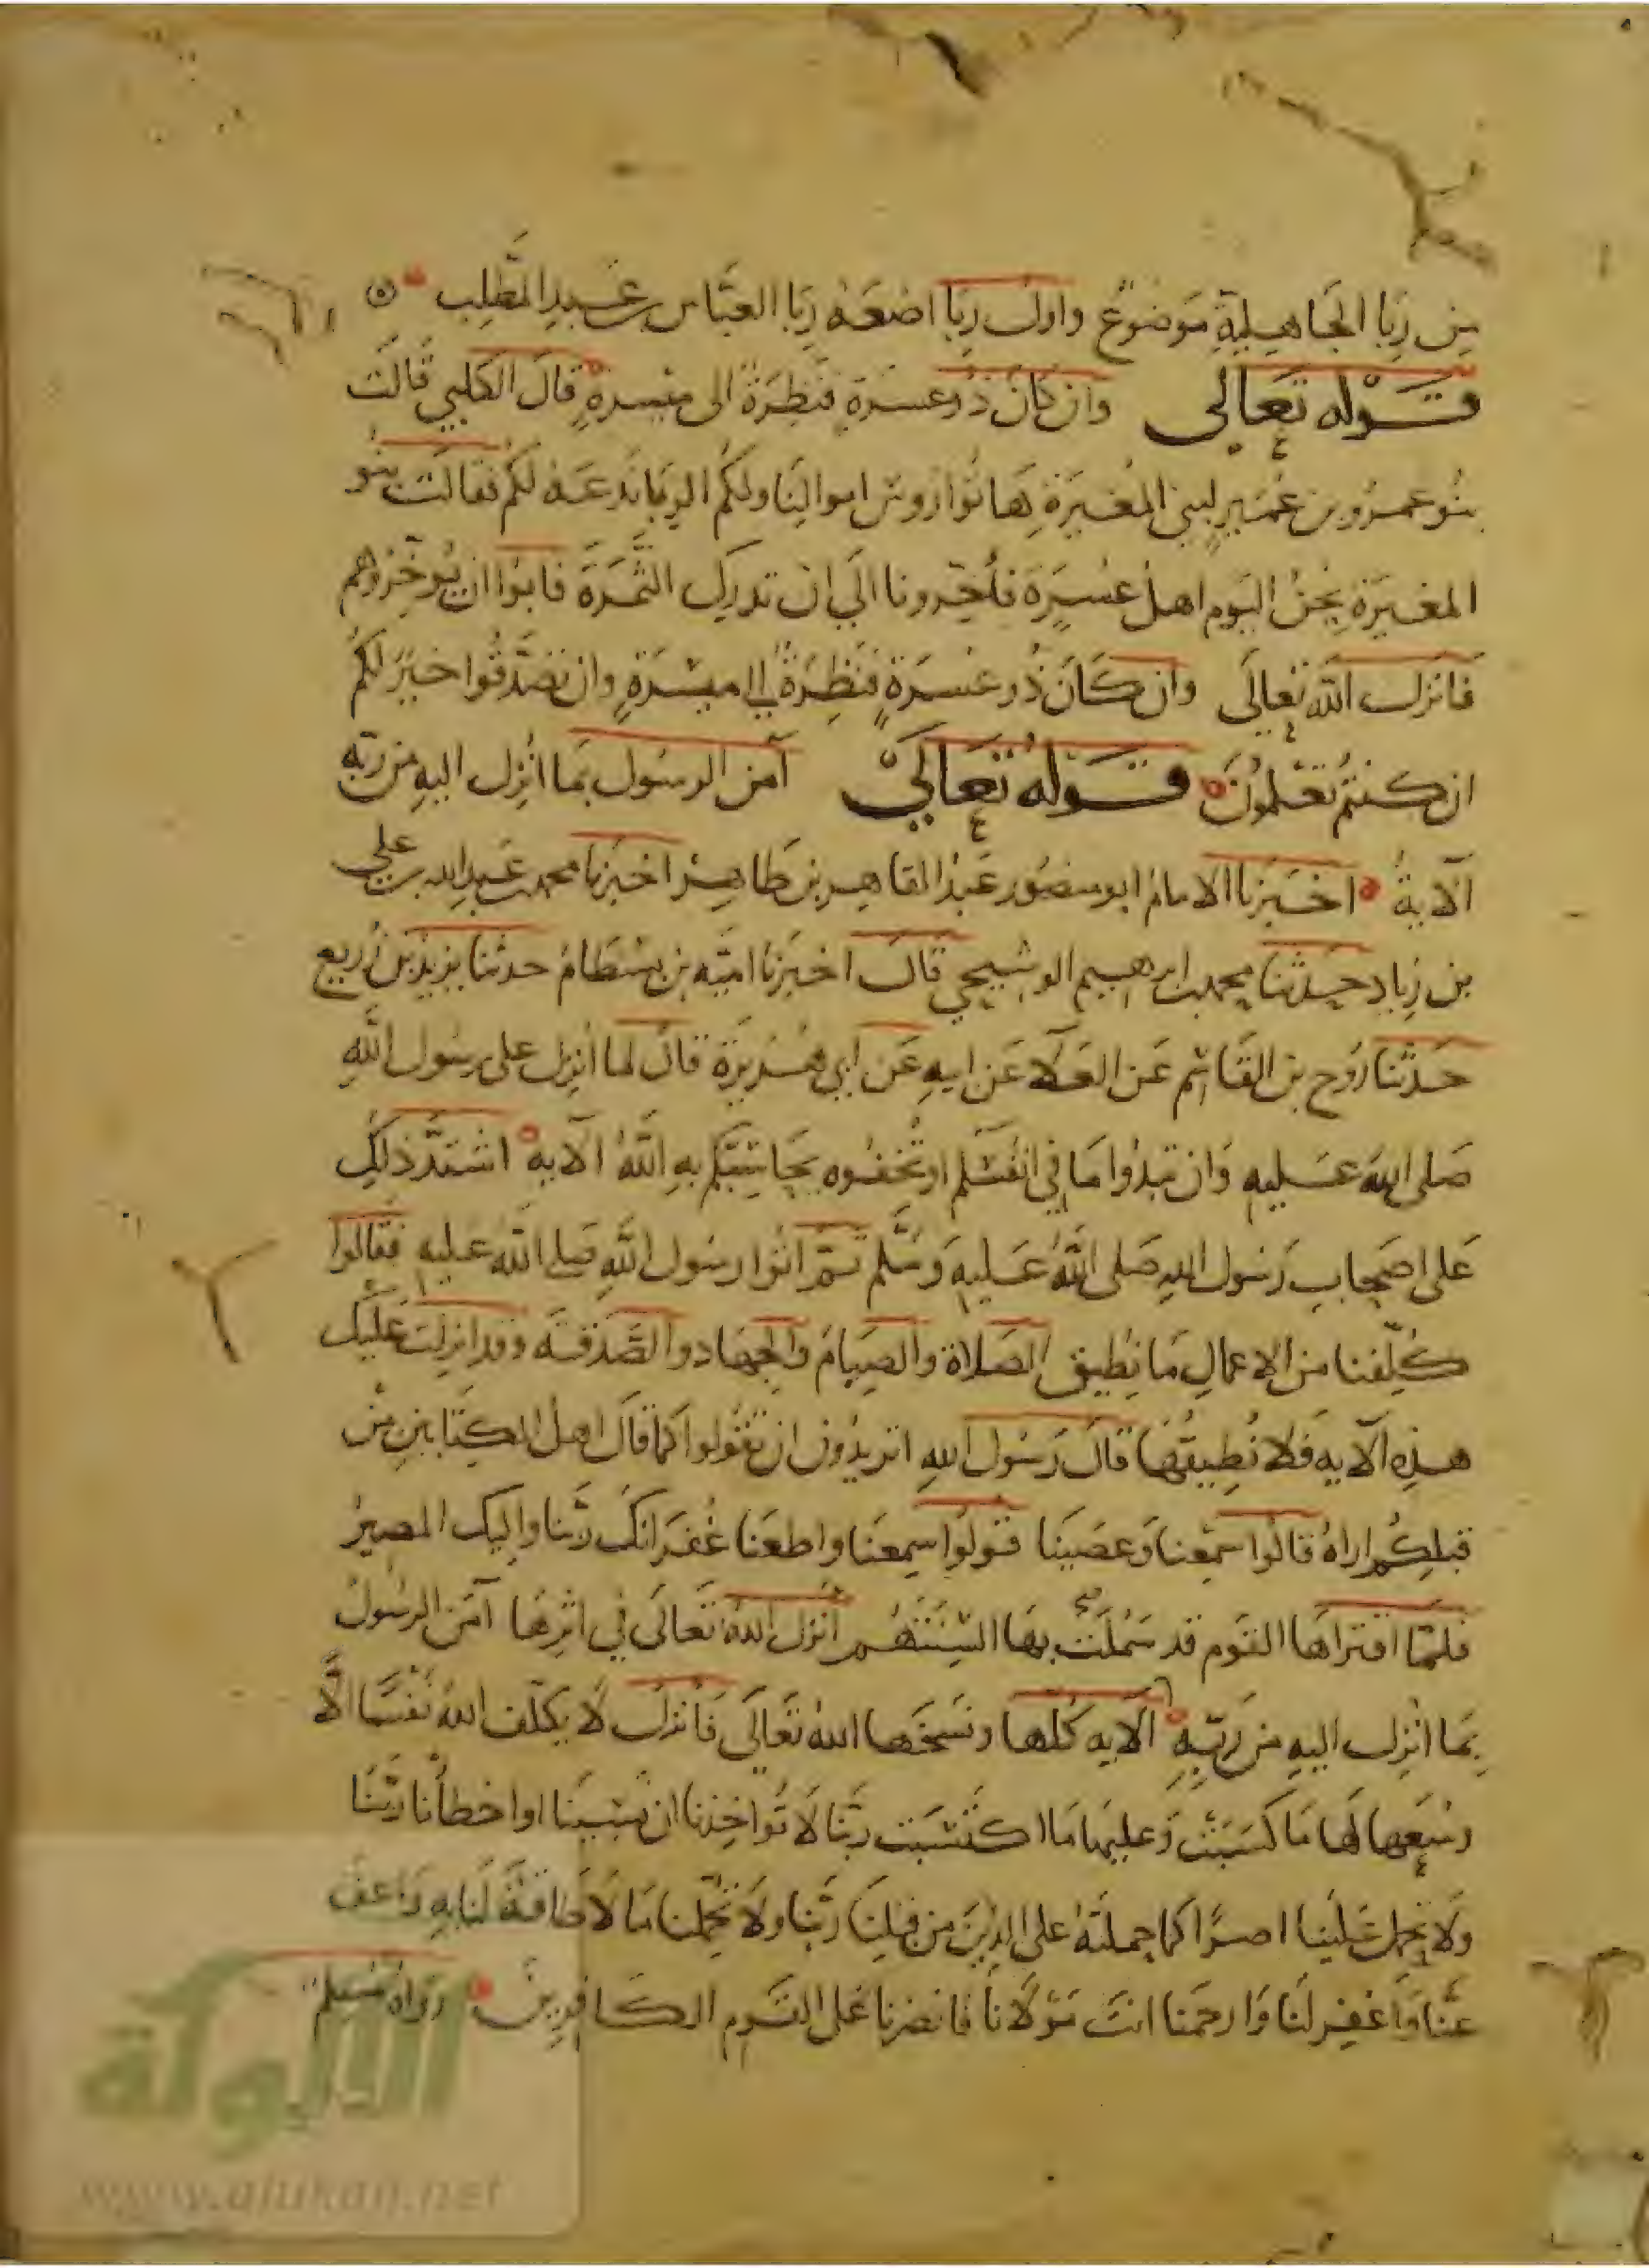 من رِبَا الجَاهِليةِ مَوضوُع واول رِبَا اضعَهُ رِبَا العبَّاس بن عَبدِ المطَّلِب
قَوْله تعَالى وَان كَانَ ذُو عسرَةٍ فنَظِرَةٌ الى ميْسرةٍ قالَ الكلبي قَالَت
بنُو عمرو بن عُمَير لبني المُغيرَةِ هَاتوُا رُوس اموالِنَا ولكُم الرِبَا نَدعَهُ لكُم فقالَت بنُو
المغيَرة نِحنُ اليَوم اهلُ عُسرَةٍ فأخِّرونا الَى ان تدرِك الثَّمرَة فابوا ان يُوخِّرُوهم
فَانزل الله تعالَى وان كَانَ ذُو عُسرَةٍ فنَظِرَةٌ الى ميسَرَةٍ وان تصَدَّقُوا خيرٌ لكُمُ
ان كنتُم تعلمُونَ قَولهُ تعَالَى آمن الرسُول بمَا انُزِل اليهِ من ربِّهِ
الآية اخبرنا الامامُ ابو منصُور عَبدُ القاهِر بن طَاهِر اخبرَنا محمد بن عَبدِ الله بن علي
بن زِياد حدَثنا محمد بن ابرهيم البوشيجي قالَ اخبرَنا اميَّه بن بِسْطَامُ حدثنا يزيدُ بن زُريع
حَدثنَا رَوح بن القَاسِم عَن العَلآ عَن ابيهِ عَن أبي هُريرَة قالَ لما اُنزِل على رسُول اللهِ
صَلى الله عَليهِ وَان تبدُوا مَا في انفُسكم او تُخفُوه يحَاسِبكُم بهِ اللهُ الآيه اشتدَّ ذلكَ
عَلى اصحَابِ رَسُول اللهِ صَلى اللهُ عَليهِ وَسَّلم ثمَّ اتَوا رسُول اللهِ صَلى الله عَليهِ فَقالوا
كُلِّفنا من الاعمَالِ مَا نطِيق الصَلاة والصِيَامَ والجِهَاد والصَّدَقَه وقد انزلَت عَليك
هذِهِ الآيه فَلا نُطِيقُهَا قالَ رَسُول اللهِ اتريدُون ان تقُولوا كمَا قالَ اهلُ الكِتَابَينِ مِنْ
قبلِكُم اراهُ قالُوا سَمِعنا وَعصَينَا قُولُوا سِمعنَا واطعَنا غُفرَانَكَ ربَّنا وَاليك المصير
فلمَّا اقتراهَا القَوم قد سَهُلَتْ بهَا السِنَتهُم أنزل اللهُ تعَالَى في اثرِهَا آمَن الرسُولُ
بمَا انُزل اليهِ من رَبِّهِ الآيه كُلها ونَسَخهَا اللهُ تعَالَى فَانزل لَا يكلّف اللهُ نفسًا الَّا
وسُعهَا لَها مَا كسَبَتْ وَعليهَا مَا اكتَسَبَت رَبَّنا لَا تُواخِذنا ان نسِينَا او اخطأنا ربَّنَا
ولَا تحمِل عَلَينا اصرًا كما حملتَهُ على الذِينَ من قبلِنَا رَبَّنا ولَا تحمِّلنا مَا لَا طَاقَةَ لَنا بهِ واعف
عَنَّا وَاغفِر لَنَا وَارحَمنا انتَ مَوْلَانَا فَانصُرنا عَلى القَوم الكَافِرِين رَوَاهُ مُسلم
الألوكة
www.alukah.net